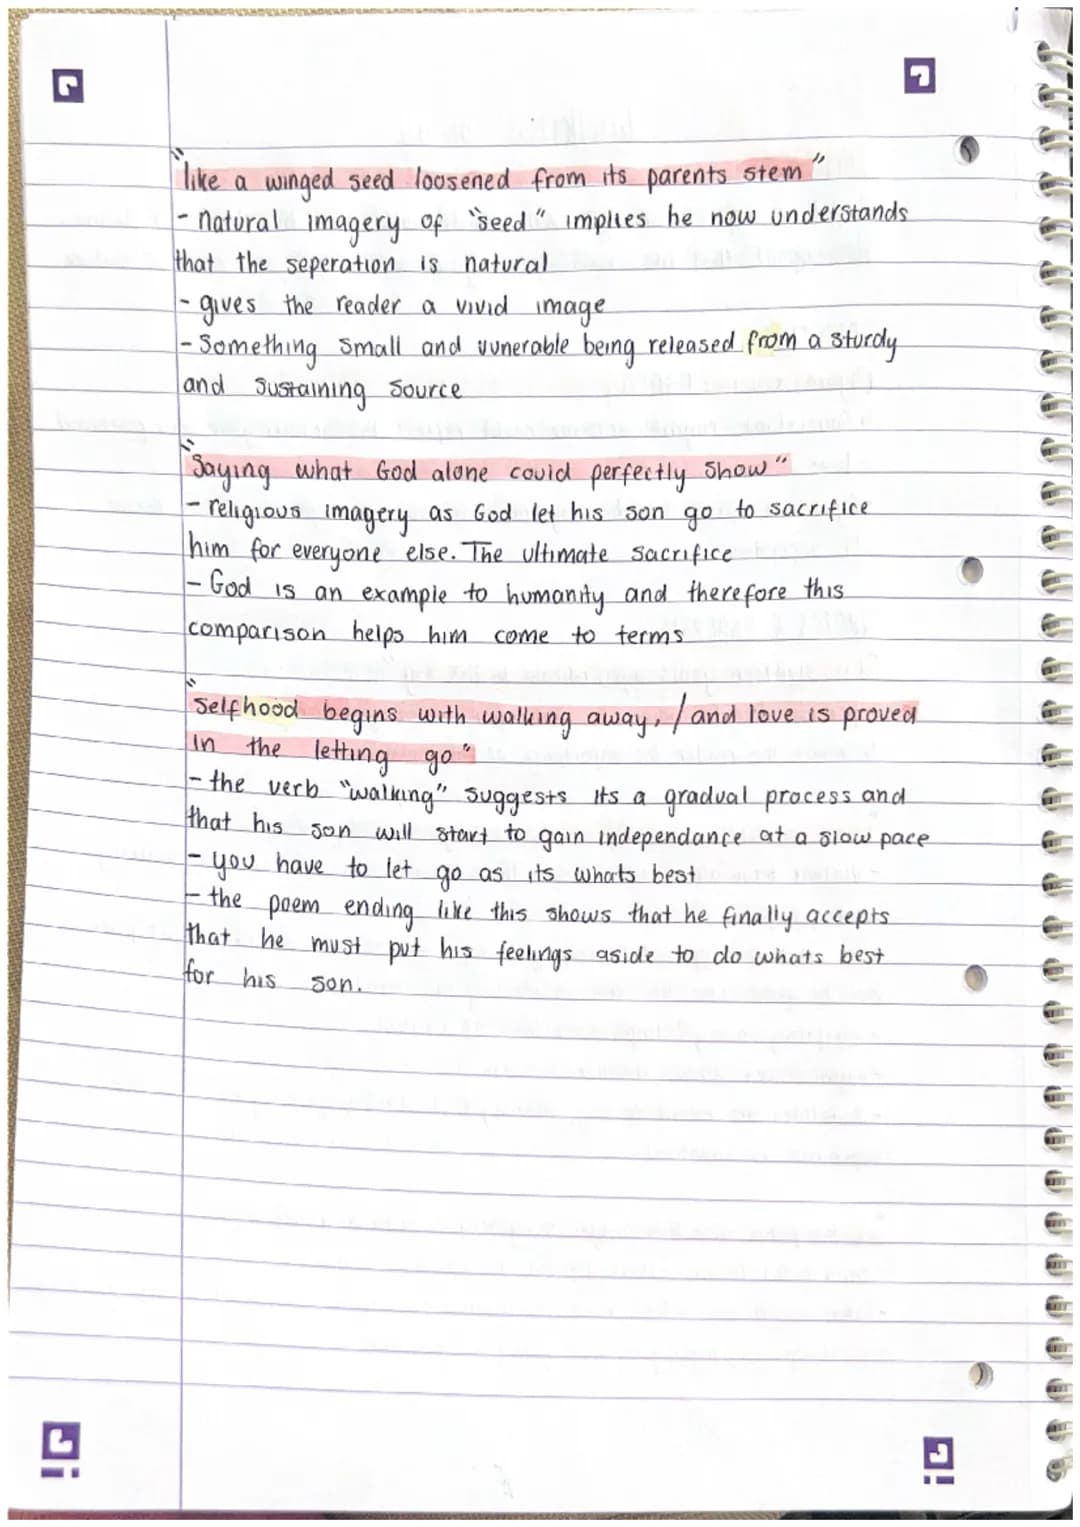 "like a winged seed loosened from its parents stem"
- natural imagery of "seed" implies he now understands
that the seperation is natural
- gives the reader a vivid image
- Something small and vunerable being released from a sturdy
and sustaining source
"Saying what God alone could perfectly show"
- religious imagery as God let his son go to sacrifice
him for everyone else. The ultimate sacrifice
- God is an example to humanity and therefore this
comparison helps him come to terms
"Selfhood begins with walking away, / and love is proved
in the letting go"
- the verb "walking" suggests its a gradual process and
that his son will start to gain independance at a slow pace
- you have to let go as its whats best
- the poem ending like this shows that he finally accepts
that he must put his feelings aside to do whats best
for his son.